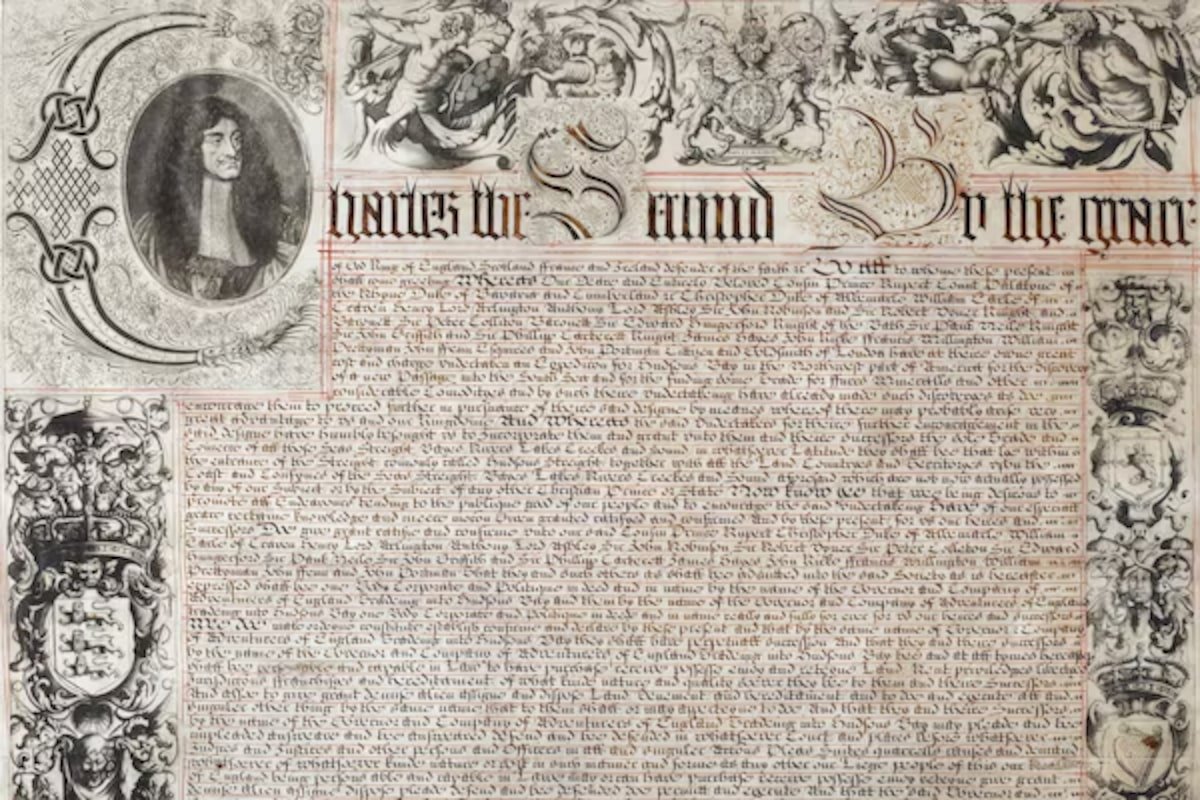 Charles the Second By the grace
of God King of England Scotland ffrance and Ireland defender of the faith &c To All to whome these present
shall come greeting Whereas Our Deare and Entirely Beloved Cousin Prince Rupert Count Palatyne of
the Rhyne Duke of Bavaria and Cumberland &c Christopher Duke of Albemarle William Earle of
Craven Henry Lord Arlington Anthony Lord Ashley Sir John Robinson and Sir Robert Vyner Knight and
Baronett Sir Peter Colliton Baronett Sir Edward Hungerford Knight of the Bath Sir Paul Neile Knight
Sir John Griffith and Sir Phillip Carterett Knight James Hayes John Kirke ffrancis Millington William
Prettyman John ffenn Esquires and John Portman Cittizen and Goldsmith of London have at theire owne great
cost and charge undertaken an Expedicon for Hudsons Bay in the Northwest part of America for the discovery
of a new Passage into the South Sea and for the finding some Trade for ffurrs Mineralls and other
considerable Comodityes and by such theire undertakeing have already made such discoveryes as doe
encourage them to proceed further in pursuance of theire said designe by meanes whereof there may probably arise very
great advantage to us and our Kingdome And Whereas the said Undertakers for theire further encouragement in the
said designe have humbly besought us to Incorporate them and grant unto them and theire successors the sole Trade and
Comerce of all those Seas Streight Bayes Rivers Lakes Creekes and Sound in whatsoever Latitude they shall bee that lye within
the entrance of the Streight comonly called Hudsons Streight together with all the Land Countryes and Territoryes upon the
Coast and Confynes of the Seas Streight Bayes Lakes Rivers Creekes and Sound aforesaid which are not now actually possessed
by any of our Subject or by the Subject of any other Christian Prince or State Now know yee that wee being desirous to
promote all Endeavours tending to the publique good of our people and to encourage the said undertakeing Have of our especiall
grace certaine knowledge and meere mocon Given granted ratifyed and confirmed And by these present for us our heires and
Successors Doe give grant ratifie and confirme unto our said Cousin Prince Rupert Christopher Duke of Albemarle William
Earle of Craven Henry Lord Arlington Anthony Lord Ashley Sir John Robinson Sir Robert Vyner Sir Peter Colleton Sir Edward
Hungerford Sir Paul Neile Sir John Griffith and Sir Phillip Carterett James Hayes John Kirke ffrancis Millington William
Prettyman John ffenn and John Portman That they and such others as shall bee admitted into the said Society as is hereafter
expressed shall bee one Body Corporate and Politique in deed and in name by the name of the Governor and Company of
Adventurers of England Tradeing into Hudsons Bay and them by the name of the Governor and Company of Adventurers of England
Tradeing into Hudsons Bay one Body Corporate and Politique in deede and in name really and fully for ever for us our heires and successors
Wee Doe make ordeyne constitute establish confirme and declare by these present and that by the same name of Governor Company
of Adventurers of England Tradeing into Hudsons Bay they shall have perpetuall Succession And that they and theire Successors
by the name of the Governor and Company of Adventurers of England Tradeing into Hudsons Bay bee and at all tymes hereafter
shall bee persons able and capable in Law to have purchase receive possesse enjoy and reteyne Land Rent priviledges libertyes
Jurisdiccons ffranchises and hereditament of what kind nature and quality soever they bee to them and theire Successors
And also to give grant demise alien assigne and dispose Land Tenement and hereditament and to doe and execute all and
singuler other thing by the same name that to them shall or may apperteyne to doe And that they and theire Successors
by the name of the Governor and Company of Adventurers of England Tradeing into Hudsons Bay may pleade and bee
impleaded answeare and bee answeared defend and bee defended in whatsoever Court and places before whatsoever
Judges and Justices and other persons and Officers in all and singuler Accons Pleas Suites quarrells causes and demand
whatsoever of whatsoever kinde nature or sort in such manner and forme as any other our Liege people of this our
of England being persons able and capable in Lawe may or can have purchase receive possesse enjoy reteyne give grant
demise alien assigne dispose pleade defend and bee defended doe permitt and execute And that the said Governor and